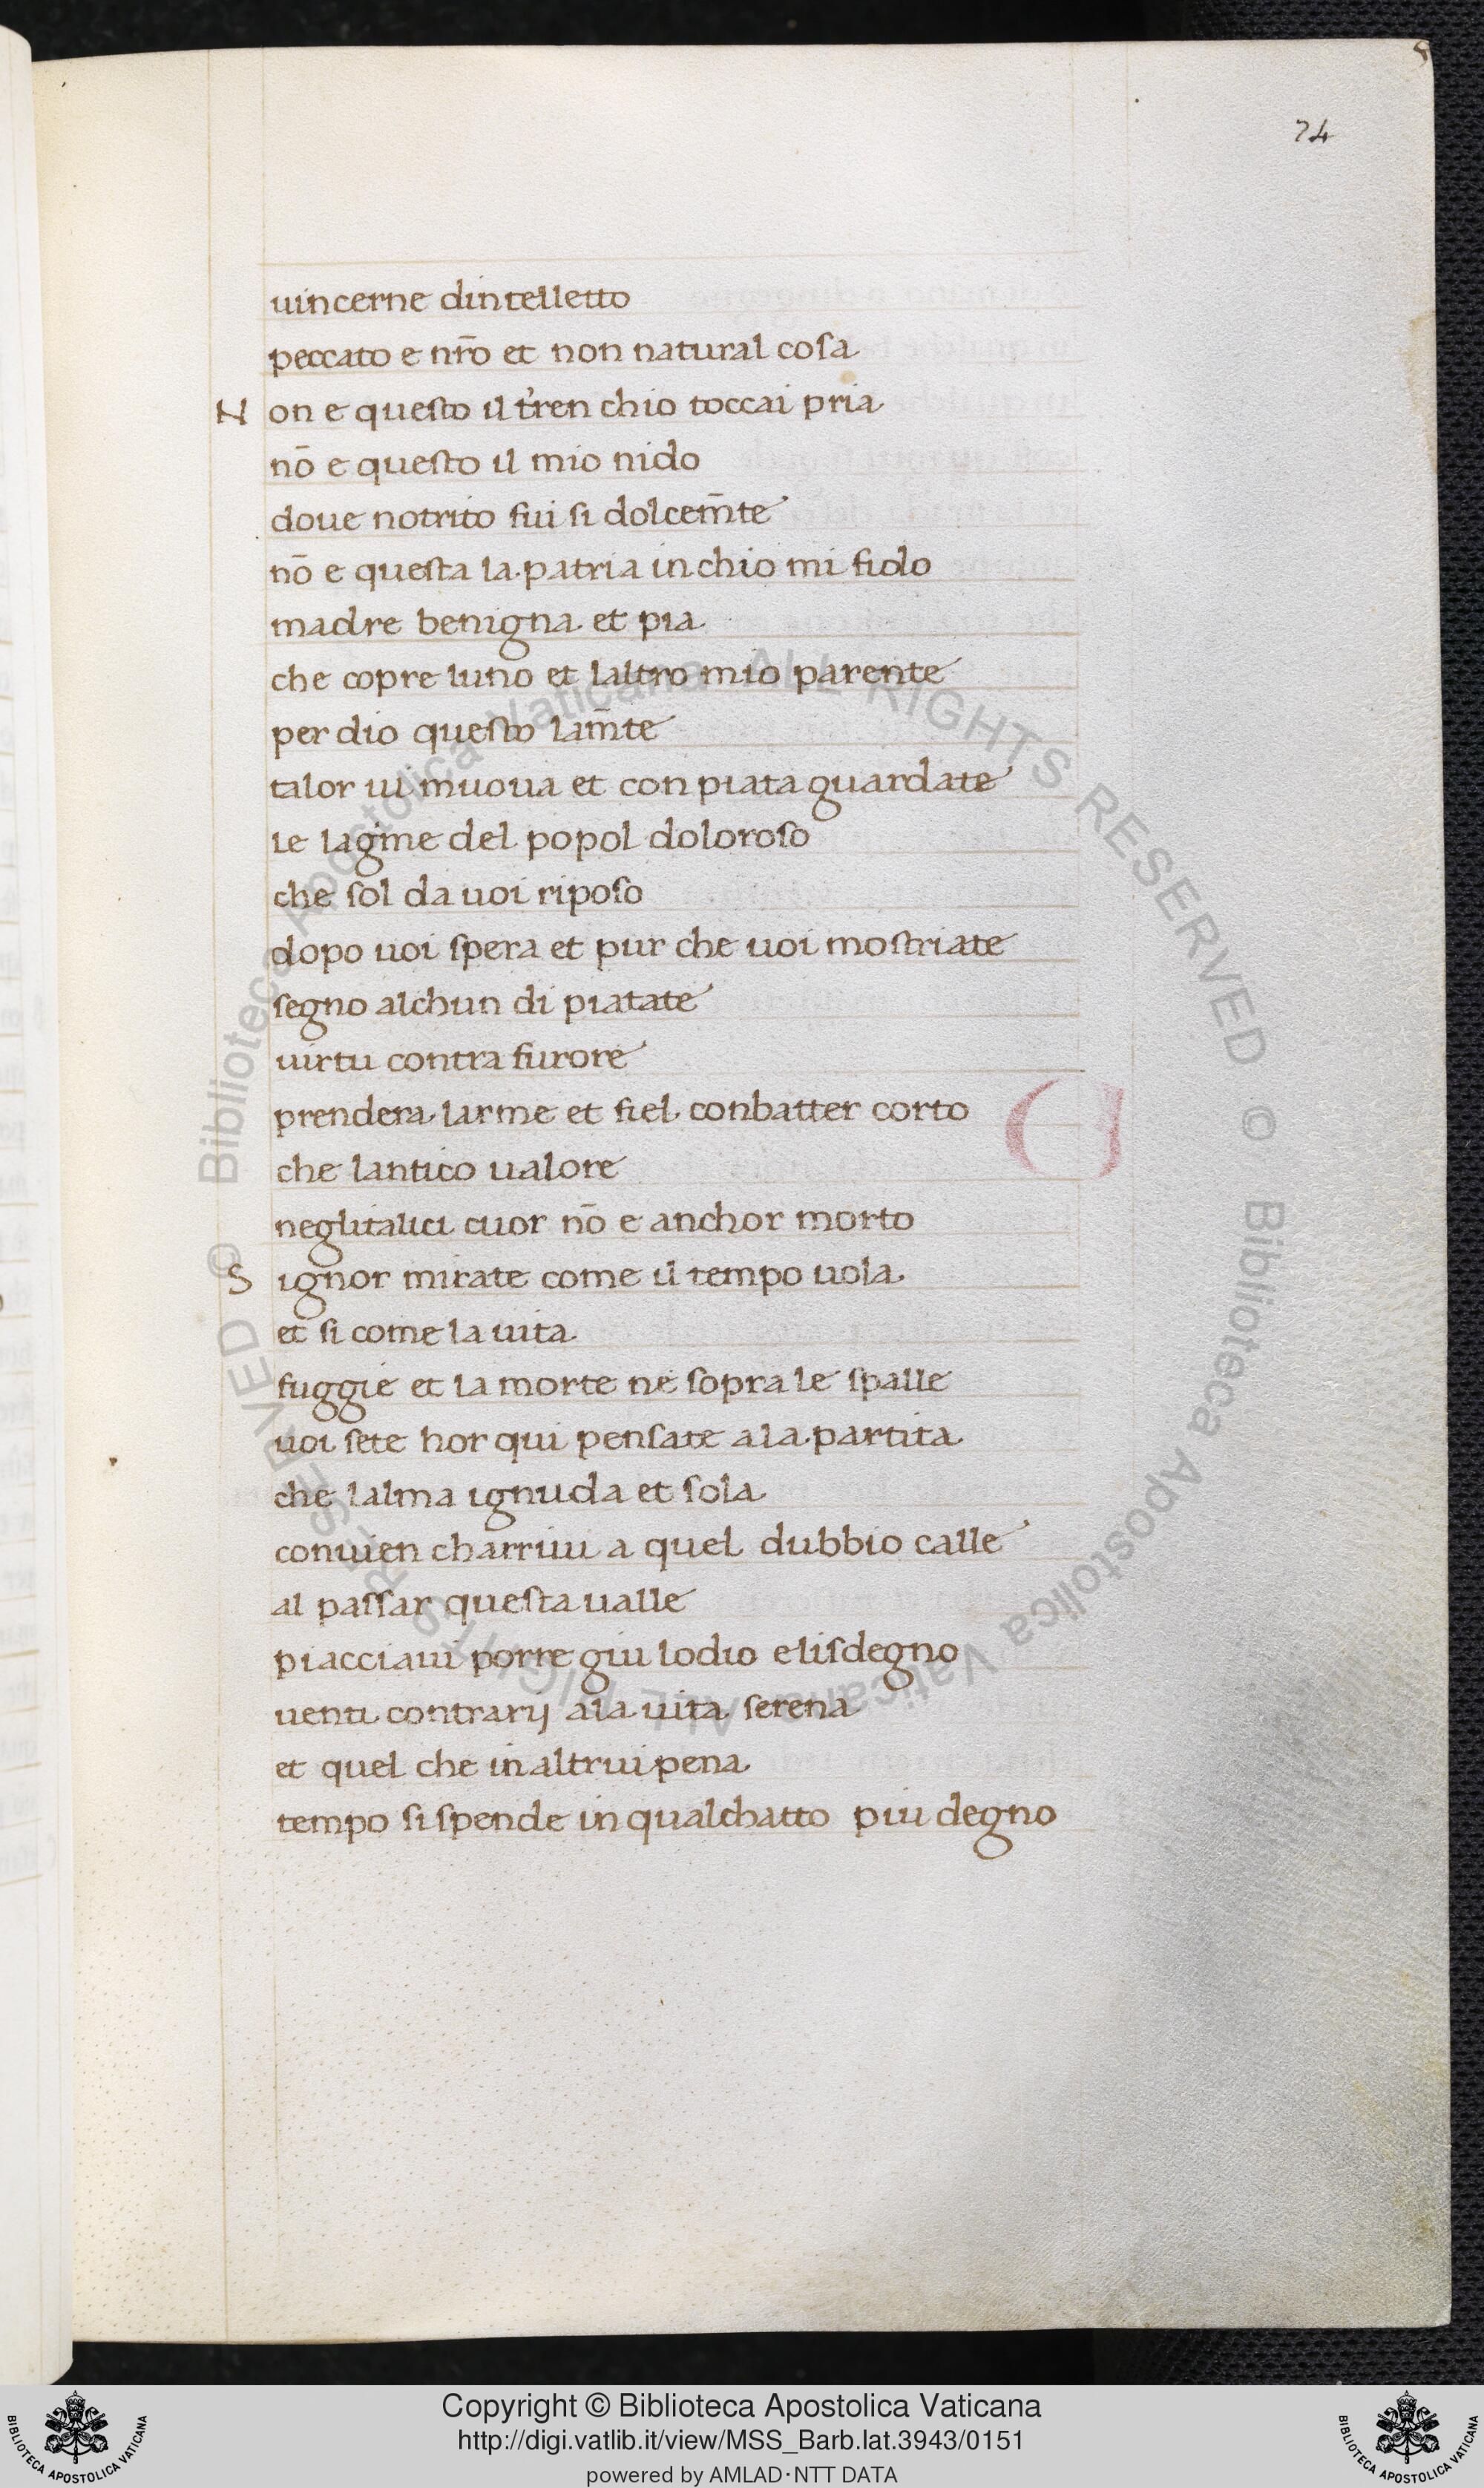 74
uincerne dintelletto
peccato e nr̄o et non natural cosa
N on e questo il t'ren chio toccai pria
nō e questo il mio nido
doue notrito fui si dolcem̄te
nō e questa la patria in chio mi fido
madre benigna et pia
che copre luno et laltro mio parente
per dio questo lam̄te
talor ui muoua et con piata guardate
le lagime del popol doloroso
che sol da uoi riposo
dopo uoi spera et pur che uoi mostriate
segno alchun di piatate
uirtu contra furore
prendera larme et fiel conbatter corto
che lantico ualore
neglitalici cuor nō e anchor morto
S ignor mirate come il tempo uola
et si come la uita
fuggie et la morte ne sopra le spalle
uoi sete hor qui pensate a la partita
che lalma ignuda et sola
conuien charriui a quel dubbio calle
al passar questa ualle
piacciaui porre giu lodio e lisdegno
uenti contrarij ala uita serena
et quel che in altrui pena
tempo si spende in qualchatto piu degno
© Biblioteca Apostolica Vaticana ALL RIGHTS RESERVED © Biblioteca Apostolica Vaticana ALL RIGHTS RESERVED
Copyright © Biblioteca Apostolica Vaticana
http://digi.vatlib.it/view/MSS_Barb.lat.3943/0151
powered by AMLAD·NTT DATA
BIBLIOTECA APOSTOLICA VATICANA
BIBLIOTECA APOSTOLICA VATICANA